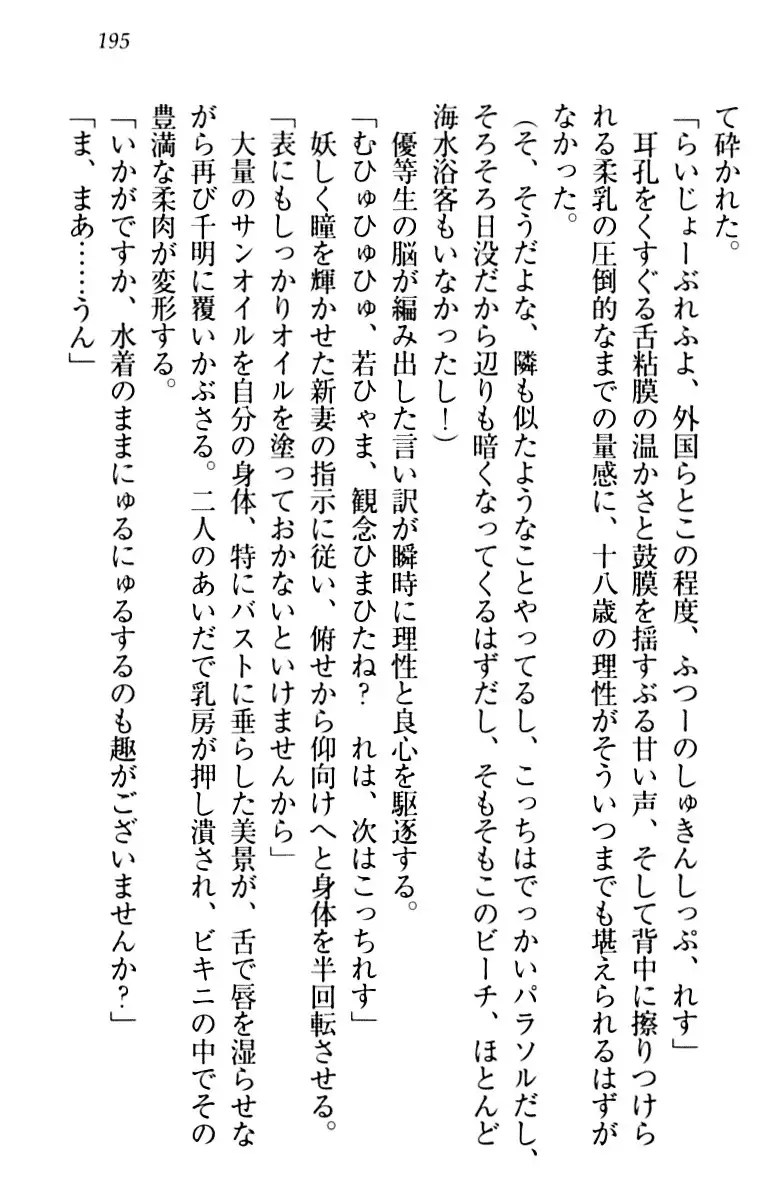 195
て砕かれた。
「らいじょーぶれふよ、外国らとこの程度、ふつーのしゅきんしっぷ、れす」
　耳孔をくすぐる舌粘膜の温かさと鼓膜を揺すぶる甘い声、そして背中に擦りつけら
れる柔乳の圧倒的なまでの量感に、十八歳の理性がそういつまでも堪えられるはずが
なかった。
（そ、そうだよな、隣も似たようなことやってるし、こっちはでっかいパラソルだし、
そろそろ日没だから辺りも暗くなってくるはずだし、そもそもこのビーチ、ほとんど
海水浴客もいなかったし！）
　優等生の脳が編み出した言い訳が瞬時に理性と良心を駆逐する。
「むひゅひゅひゅ、若ひゃま、観念ひまひたね？　れは、次はこっちれす」
　妖しく瞳を輝かせた新妻の指示に従い、俯せから仰向けへと身体を半回転させる。
「表にもしっかりオイルを塗っておかないといけませんから」
　大量のサンオイルを自分の身体、特にバストに垂らした美景が、舌で唇を湿らせな
がら再び千明に覆いかぶさる。二人のあいだで乳房が押し潰され、ビキニの中でその
豊満な柔肉が変形する。
「いかがですか、水着のままにゅるにゅるするのも趣がございませんか？」
「ま、まあ……うん」